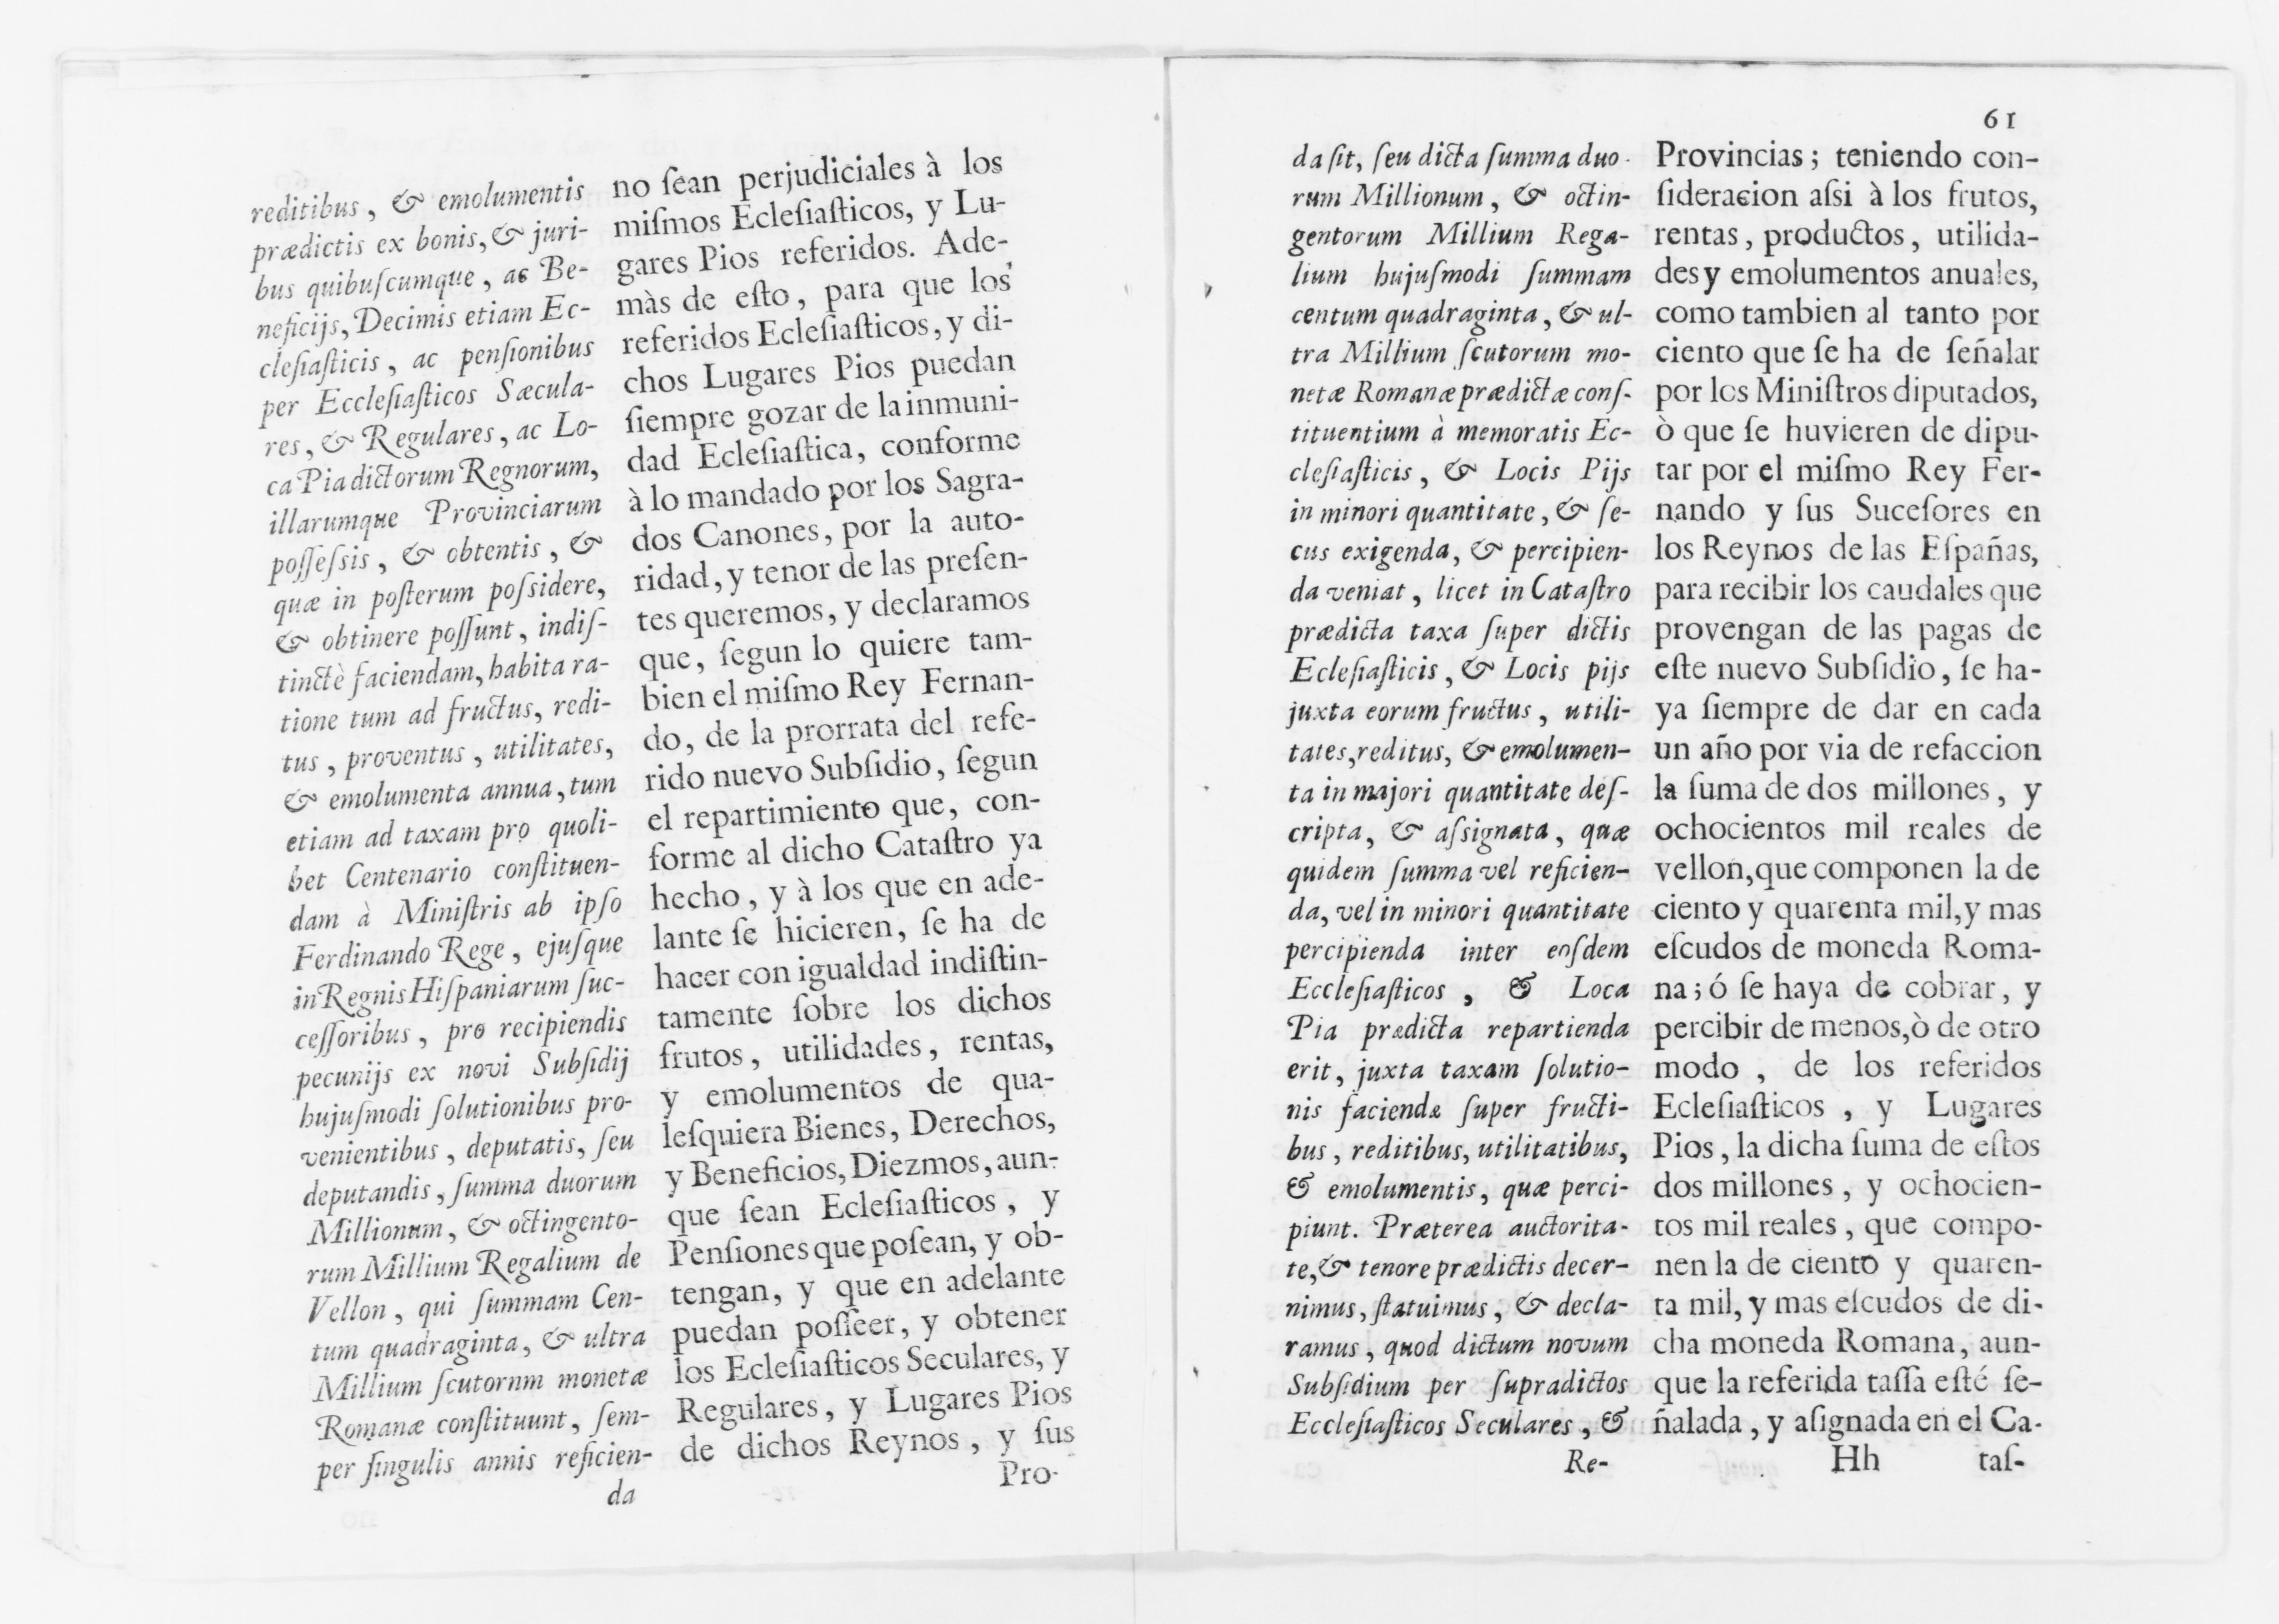 reditibus, & emolumentis
prædictis ex bonis, & juri-
bus quibuſcumque, ac Be-
neficijs, Decimis etiam Ec-
cleſiaſticis, ac penſionibus
per Eccleſiaſticos Sæcula-
res, & Regulares, ac Lo-
ca Pia dictorum Regnorum,
illarumque Provinciarum
poſſeſsis, & obtentis, &
quæ in poſterum poſsidere,
& obtinere poſſunt, indiſ-
tinctè faciendam, habita ra-
tione tum ad fructus, redi-
tus, proventus, utilitates,
& emolumenta annua, tum
etiam ad taxam pro quoli-
bet Centenario conſtituen-
dam à Miniſtris ab ipſo
Ferdinando Rege, ejuſque
in Regnis Hiſpaniarum ſuc-
ceſſoribus, pro recipiendis
pecunijs ex novi Subſidij
hujuſmodi ſolutionibus pro-
venientibus, deputatis, ſeu
deputandis, ſumma duorum
Millionum, & octingento-
rum Millium Regalium de
Vellon, qui ſummam Cen-
tum quadraginta, & ultra
Millium ſcutornm monetæ
Romanæ conſtituunt, ſem-
per ſingulis annis reficien-
da
no ſean perjudiciales à los
miſmos Ecleſiaſticos, y Lu-
gares Pios referidos. Ade-
màs de eſto, para que los
referidos Ecleſiaſticos, y di-
chos Lugares Pios puedan
ſiempre gozar de la inmuni-
dad Ecleſiaſtica, conforme
à lo mandado por los Sagra-
dos Canones, por la auto-
ridad, y tenor de las preſen-
tes queremos, y declaramos
que, ſegun lo quiere tam-
bien el miſmo Rey Fernan-
do, de la prorrata del refe-
rido nuevo Subſidio, ſegun
el repartimiento que, con-
forme al dicho Cataſtro ya
hecho, y à los que en ade-
lante ſe hicieren, ſe ha de
hacer con igualdad indiſtin-
tamente ſobre los dichos
frutos, utilidades, rentas,
y emolumentos de qua-
leſquiera Bienes, Derechos,
y Beneficios, Diezmos, aun-
que ſean Ecleſiaſticos, y
Penſiones que poſean, y ob-
tengan, y que en adelante
puedan poſſeer, y obtener
los Ecleſiaſticos Seculares, y
Regulares, y Lugares Pios
de dichos Reynos, y ſus
Pro-
61
da ſit, ſeu dicta ſumma duo-
rum Millionum, & octin-
gentorum Millium Rega-
lium hujuſmodi ſummam
centum quadraginta, & ul-
tra Millium ſcutorum mo-
netæ Romanæ prædictæ conſ-
tituentium à memoratis Ec-
cleſiaſticis, & Locis Pijs
in minori quantitate, & ſe-
cus exigenda, & percipien-
da veniat, licet in Cataſtro
prædicta taxa ſuper dictis
Ecleſiaſticis, & Locis pijs
juxta eorum fructus, utili-
tates, reditus, & emolumen-
ta in majori quantitate deſ-
cripta, & aſsignata, quæ
quidem ſumma vel reficien-
da, vel in minori quantitate
percipienda inter eoſdem
Eccleſiaſticos, & Loca
Pia prædicta repartienda
erit, juxta taxam ſolutio-
nis faciendæ ſuper fructi-
bus, reditibus, utilitatibus,
& emolumentis, quæ perci-
piunt. Præterea auctorita-
te, & tenore prædictis decer-
nimus, ſtatuimus, & decla-
ramus, quod dictum novum
Subſidium per ſupradictos
Eccleſiaſticos Seculares, &
Re-
Provincias; teniendo con-
ſideracion aſsi à los frutos,
rentas, productos, utilida-
des y emolumentos anuales,
como tambien al tanto por
ciento que ſe ha de ſeñalar
por los Miniſtros diputados,
ò que ſe huvieren de dipu-
tar por el miſmo Rey Fer-
nando y ſus Suceſores en
los Reynos de las Eſpañas,
para recibir los caudales que
provengan de las pagas de
eſte nuevo Subſidio, ſe ha-
ya ſiempre de dar en cada
un año por via de refaccion
la ſuma de dos millones, y
ochocientos mil reales de
vellon, que componen la de
ciento y quarenta mil, y mas
eſcudos de moneda Roma-
na; ó ſe haya de cobrar, y
percibir de menos, ò de otro
modo, de los referidos
Ecleſiaſticos, y Lugares
Pios, la dicha ſuma de eſtos
dos millones, y ochocien-
tos mil reales, que compo-
nen la de ciento y quaren-
ta mil, y mas eſcudos de di-
cha moneda Romana, aun-
que la referida taſſa eſté ſe-
ñalada, y aſignada en el Ca-
Hh taſ-